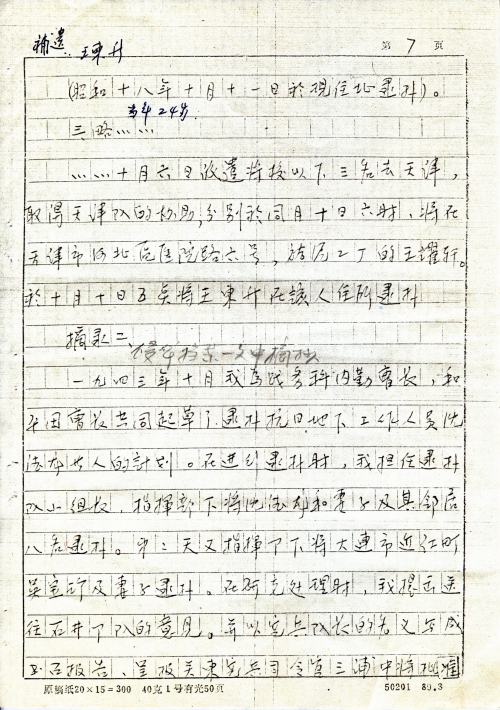 補遺 王東升
第 7 页
(昭和十八年十月十一日於現住址逮捕)。
当年24岁
三略……
……十月六日派遣将校以下三名去天津，
取得天津队的协助，分别於同月十日六时，将在
天津市河北区医院路六号，的王耀轩。
於十月十日五英将王東升在該人住所逮捕
摘录二
一文中摘抄
一九四三年十月我为战务科内勤曹长，和
曹长共同起草了逮捕抗日地下工作人员沈
法的计划。在进行逮捕时，我担任逮捕
队小组长，指挥部下将沈和妻子及其邻居
八名逮捕。第二天又指挥部下将大連市近江町
吴宝及妻子逮捕。在研究处理时，我提出送
往石井部队的意见。并以宪兵队长的名义写成
报告，呈报关東宪兵司令官三浦中将批准
原稿纸20×15=300 40克1号有光50页
50201 89.3